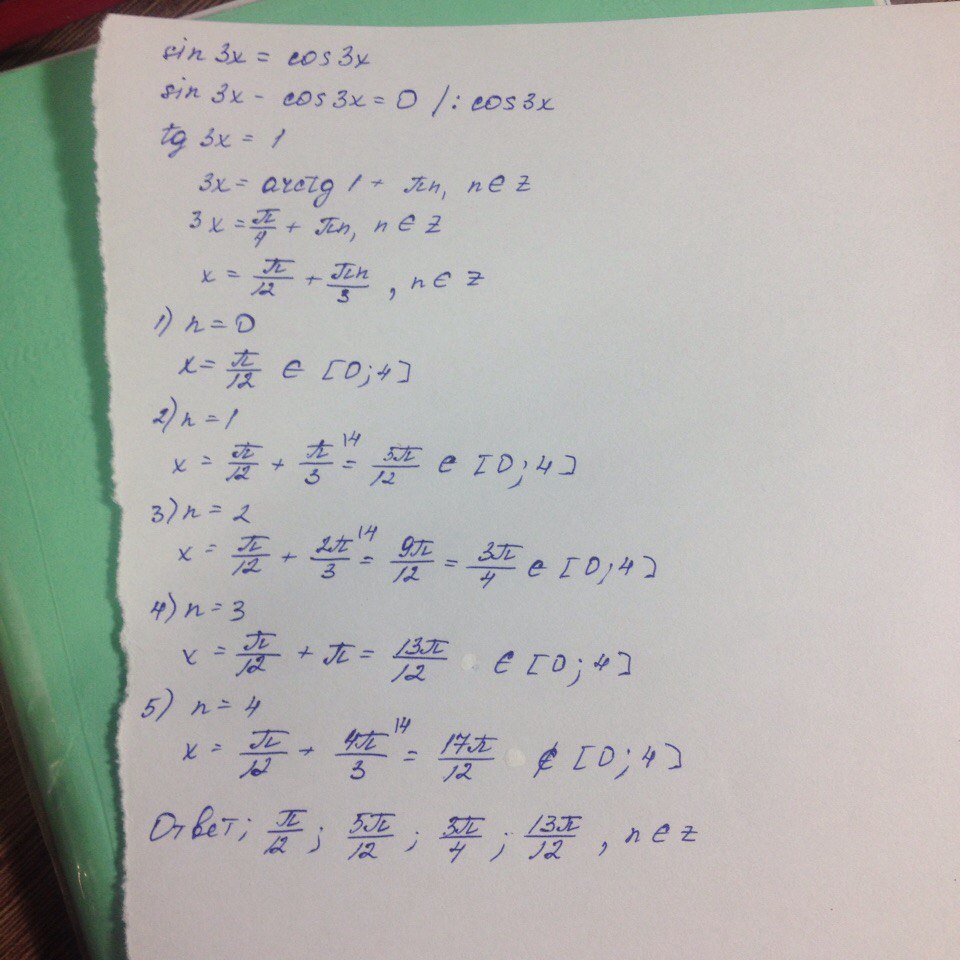 sin 3x = cos 3x
sin 3x - cos 3x = 0 /: cos 3x
tg 3x = 1
3x = arctg 1 + πn, n ∈ Z
3x = π/4 + πn, n ∈ Z
x = π/12 + πn/3, n ∈ Z
1) n = 0
x = π/12 ∈ [0; 4]
2) n = 1
x = π/12 + π/3 \4 = 5π/12 ∈ [0; 4]
3) n = 2
x = π/12 + 2π/3 \4 = 9π/12 = 3π/4 ∈ [0; 4]
4) n = 3
x = π/12 + π = 13π/12 ∈ [0; 4]
5) n = 4
x = π/12 + 4π/3 \4 = 17π/12 ∉ [0; 4]
Ответ; π/12; 5π/12; 3π/4; 13π/12, n ∈ Z